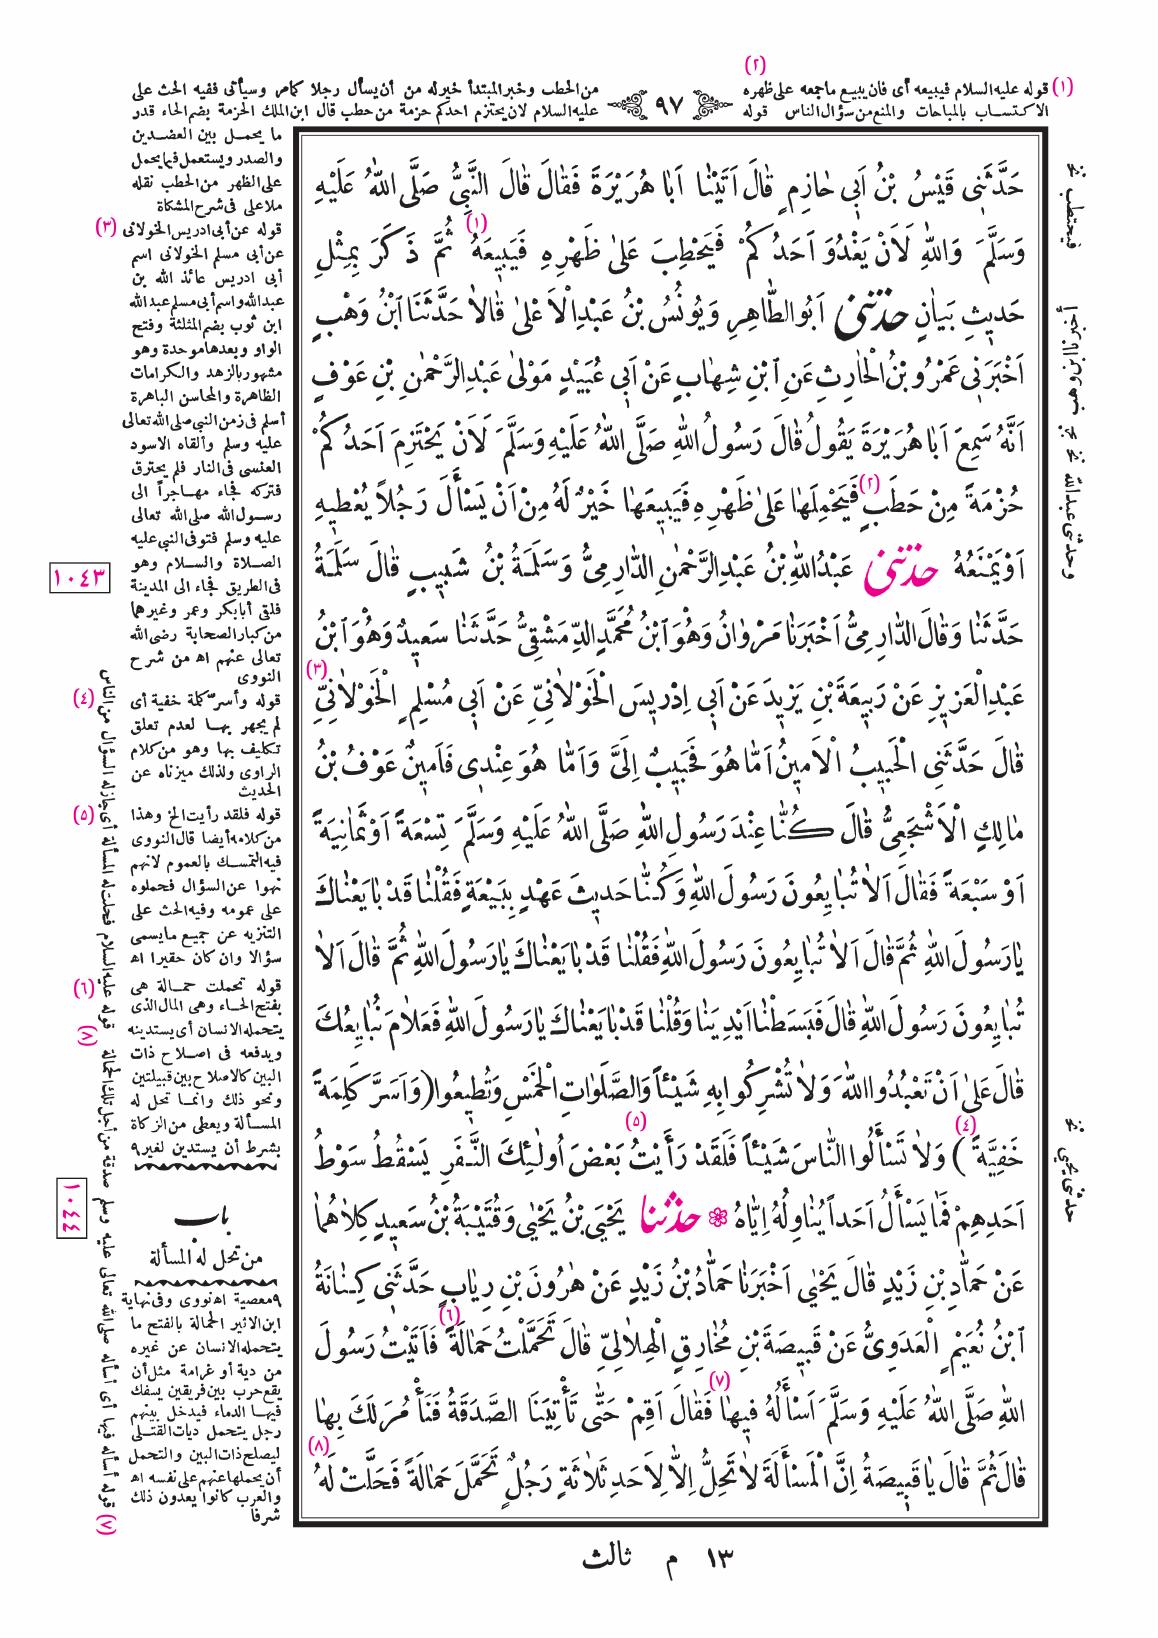 (٢)
(١) قوله عليه السلام فيبيعه أى فان يبيع ماجمعه على ظهره
الاكتساب بالمباحات والمنع من سؤال الناس قوله
٩٧
من الحطب وخبر المبتدأ خير له من أن يسأل رجلا كمامر وسيأتى ففيه الحث على
عليه السلام لان يحتزم احدكم حزمة من حطب قال ابن الملك الحزمة بضم الحاء قدر
حَدَّثَنِى قَيْسُ بْنُ اَبِى حَازِمٍ قَالَ اَتَيْنَا اَبَا هُرَيْرَةَ فَقَالَ قَالَ النَّبِىُّ صَلَّى اللّٰهُ عَلَيْهِ
وَسَلَّمَ وَاللّٰهِ لَاَنْ يَغْدُوَ اَحَدُكُمْ فَيَحْطِبَ عَلٰى ظَهْرِهِ فَيَبِيعَهُ (١) ثُمَّ ذَكَرَ بِمِثْلِ
حَدِيثِ بَيَانٍ حدثنى اَبُو الطَّاهِرِ وَيُونُسُ بْنُ عَبْدِ الْاَعْلٰى قَالَا حَدَّثَنَا ابْنُ وَهْبٍ
اَخْبَرَنِى عَمْرُو بْنُ الْحَارِثِ عَنِ ابْنِ شِهَابٍ عَنْ اَبِى عُبَيْدٍ مَوْلٰى عَبْدِ الرَّحْمٰنِ بْنِ عَوْفٍ
اَنَّهُ سَمِعَ اَبَا هُرَيْرَةَ يَقُولُ قَالَ رَسُولُ اللّٰهِ صَلَّى اللّٰهُ عَلَيْهِ وَسَلَّمَ لَاَنْ يَحْتَزِمَ اَحَدُكُمْ
حُزْمَةً مِنْ حَطَبٍ (٢) فَيَحْمِلَهَا عَلٰى ظَهْرِهِ فَيَبِيعَهَا خَيْرٌ لَهُ مِنْ اَنْ يَسْأَلَ رَجُلاً يُعْطِيهِ
اَوْ يَمْنَعُهُ حدثنى عَبْدُ اللّٰهِ بْنُ عَبْدِ الرَّحْمٰنِ الدَّارِمِىُّ وَسَلَمَةُ بْنُ شَبِيبٍ قَالَ سَلَمَةُ
حَدَّثَنَا وَقَالَ الدَّارِمِىُّ اَخْبَرَنَا مَرْوَانُ وَهُوَ ابْنُ مُحَمَّدٍ الدِّمَشْقِىُّ حَدَّثَنَا سَعِيدٌ وَهُوَ ابْنُ
عَبْدِ الْعَزِيزِ عَنْ رَبِيعَةَ بْنِ يَزِيدَ عَنْ اَبِى اِدْرِيسَ الْخَوْلَانِىِّ عَنْ اَبِى مُسْلِمٍ الْخَوْلَانِىِّ (٣)
قَالَ حَدَّثَنِى الْحَبِيبُ الْاَمِينُ اَمَّا هُوَ فَحَبِيبٌ اِلَىَّ وَاَمَّا هُوَ عِنْدِى فَاَمِينٌ عَوْفُ بْنُ
مَالِكٍ الْاَشْجَعِىُّ قَالَ كُنَّا عِنْدَ رَسُولِ اللّٰهِ صَلَّى اللّٰهُ عَلَيْهِ وَسَلَّمَ تِسْعَةً اَوْ ثَمَانِيَةً
اَوْ سَبْعَةً فَقَالَ اَلَا تُبَايِعُونَ رَسُولَ اللّٰهِ وَكُنَّا حَدِيثَ عَهْدٍ بِبَيْعَةٍ فَقُلْنَا قَدْ بَايَعْنَاكَ
يَا رَسُولَ اللّٰهِ ثُمَّ قَالَ اَلَا تُبَايِعُونَ رَسُولَ اللّٰهِ فَقُلْنَا قَدْ بَايَعْنَاكَ يَا رَسُولَ اللّٰهِ ثُمَّ قَالَ اَلَا
تُبَايِعُونَ رَسُولَ اللّٰهِ قَالَ فَبَسَطْنَا اَيْدِيَنَا وَقُلْنَا قَدْ بَايَعْنَاكَ يَا رَسُولَ اللّٰهِ فَعَلَامَ نُبَايِعُكَ
قَالَ عَلٰى اَنْ تَعْبُدُوا اللّٰهَ وَلَا تُشْرِكُوا بِهِ شَيْئاً وَالصَّلَوَاتِ الْخَمْسِ وَتُطِيعُوا (وَاَسَرَّ كَلِمَةً
خَفِيَّةً (٤)) وَلَا تَسْأَلُوا النَّاسَ شَيْئاً فَلَقَدْ رَأَيْتُ (٥) بَعْضَ اُولٰئِكَ النَّفَرِ يَسْقُطُ سَوْطُ
اَحَدِهِمْ فَمَا يَسْأَلُ اَحَداً يُنَاوِلُهُ اِيَّاهُ ❁ حدثنا يَحْيَى بْنُ يَحْيٰى وَقُتَيْبَةُ بْنُ سَعِيدٍ كِلَاهُمَا
عَنْ حَمَّادِ بْنِ زَيْدٍ قَالَ يَحْيٰى اَخْبَرَنَا حَمَّادُ بْنُ زَيْدٍ عَنْ هٰرُونَ بْنِ رِيَابٍ حَدَّثَنِى كِنَانَةُ
ابْنُ نُعَيْمٍ الْعَدَوِىُّ عَنْ قَبِيصَةَ بْنِ مُخَارِقٍ الْهِلَالِىِّ قَالَ تَحَمَّلْتُ حَمَالَةً (٦) فَاَتَيْتُ رَسُولَ
اللّٰهِ صَلَّى اللّٰهُ عَلَيْهِ وَسَلَّمَ اَسْأَلُهُ فِيهَا (٧) فَقَالَ اَقِمْ حَتّٰى تَأْتِيَنَا الصَّدَقَةُ فَنَأْمُرَ لَكَ بِهَا
قَالَ ثُمَّ قَالَ يَا قَبِيصَةُ اِنَّ الْمَسْأَلَةَ لَا تَحِلُّ اِلَّا لِاَحَدِ ثَلَاثَةٍ رَجُلٍ تَحَمَّلَ حَمَالَةً فَحَلَّتْ لَهُ (٨)
فيحتطب نخ
وحدثنى عبدالله نخ
حدثنى يحيى نخ
ما يحمل بين العضدين
والصدر ويستعمل فيما يحمل
على الظهر من الحطب نقله
ملا على فى شرح المشكاة
(٣) قوله عن أبى ادريس الخولانى
عن أبى مسلم الخولانى اسم
أبى ادريس عائذ الله بن
عبدالله واسم أبى مسلم عبدالله
ابن ثوب بضم المثلثة وفتح
الواو وبعدها موحدة وهو
مشهور بالزهد والكرامات
الظاهرة والمحاسن الباهرة
أسلم فى زمن النبى صلى الله تعالى
عليه وسلم وألقاه الاسود
العنسى فى النار فلم يحترق
فتركه فجاء مهاجراً الى
رسول الله صلى الله تعالى
عليه وسلم فتوفى النبى عليه
الصلاة والسلام وهو
فى الطريق فجاء الى المدينة
فلقى أبابكر وعمر وغيرهما
من كبار الصحابة رضى الله
تعالى عنهم اه من شرح
النووى
١٠٤٣
(٤) قوله وأسرّ كلمة خفية أى
لم يجهر بها لعدم تعلق
تكليف بها وهو من كلام
الراوى ولذلك ميزناه عن
الحديث
(٥) قوله فلقد رأيت الخ وهذا
من كلامه أيضا قال النووى
فيه التمسك بالعموم لانهم
نهوا عن السؤال فحملوه
على عمومه وفيه الحث على
التنزيه عن جميع مايسمى
سؤالا وان كان حقيرا اه
(٦) قوله تحملت حمالة هى
بفتح الحاء وهى المال الذى
يتحمله الانسان أى يستدينه
ويدفعه فى اصلاح ذات
البين كالاصلاح بين قبيلتين
ونحو ذلك وانما تحل له
المسألة ويعطى من الزكاة
بشرط أن يستدين لغير ٩
باب
من تحل له المسألة
١٠٤٤
٩ معصية اه نووى وفى نهاية
ابن الاثير الحمالة بالفتح ما
يتحمله الانسان عن غيره
من دية أو غرامة مثل أن
يقع حرب بين فريقين يسفك
فيها الدماء فيدخل بينهم
رجل يتحمل ديات القتلى
ليصلح ذات البين والتحمل
أن يحملها عنهم على نفسه اه
والعرب كانوا يعدون ذلك
شرفا
(٧) قوله أسأله فيها أى أسأله صلى الله تعالى عليه وسلم صدقة من أجل تلك الحمالة (٨) قوله عليه السلام فحلت له المسألة أى جاز له السؤال من الناس
١٣ م ثالث